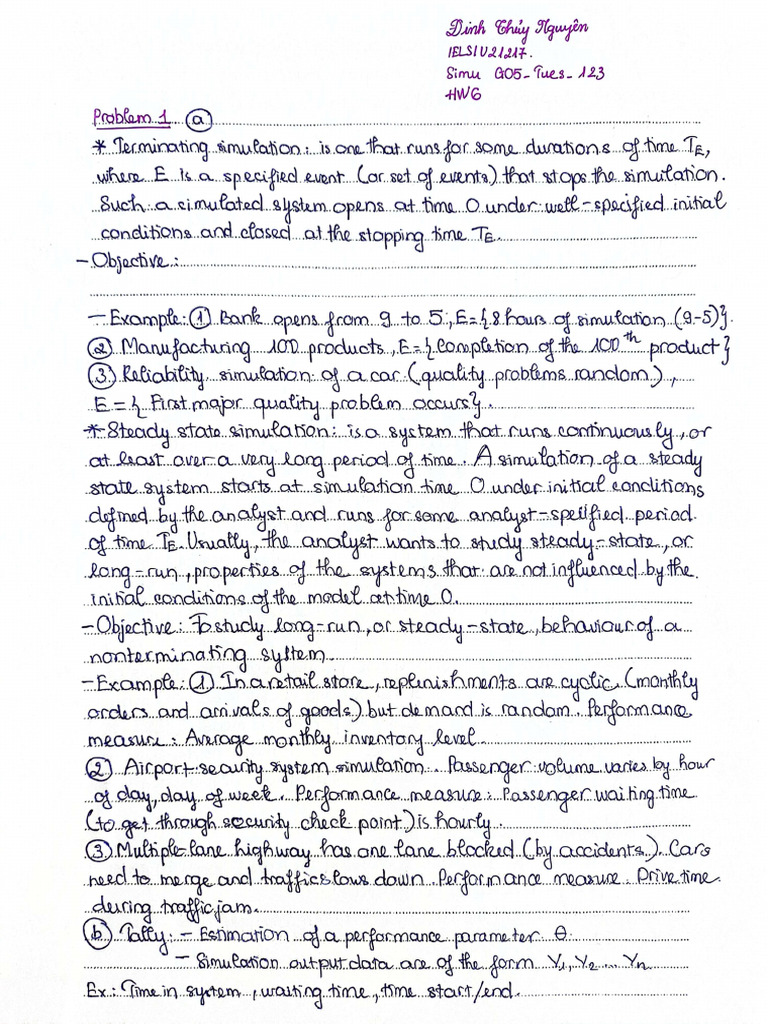 Đinh Thủy Nguyên
IELSIU21217.
Simu G05-Tues-123
HW6
Problem 1 (a)
* Terminating simulation: is one that runs for some durations of time TE,
where E is a specified event (or set of events) that stops the simulation.
Such a simulated system opens at time 0 under well-specified initial
conditions and closed at the stopping time TE.
- Objective:
- Example: (1) Bank opens from 9 to 5, E={8 hours of simulation (9-5)}.
(2) Manufacturing 100 products, E={completion of the 100th product}
(3) Reliability simulation of a car (quality problems random),
E={First major quality problem occurs}.
* Steady state simulation: is a system that runs continuously, or
at least over a very long period of time. A simulation of a steady
state system starts at simulation time 0 under initial conditions
defined by the analyst and runs for some analyst-specified period
of time TE. Usually, the analyst wants to study steady-state, or
long-run, properties of the systems that are not influenced by the
initial conditions of the model at time 0.
- Objective: To study long-run, or steady-state, behaviour of a
nonterminating system.
- Example: (1) In a retail store, replenishments are cyclic (monthly
orders and arrivals of goods) but demand is random. Performance
measure: Average monthly inventory level.
(2) Airport security system simulation. Passenger volume varies by hour
of day, day of week. Performance measure: Passenger waiting time
(to get through security check point) is hourly.
(3) Multiple-lane highway has one lane blocked (by accidents). Cars
need to merge and traffic slows down. Performance measure: Drive time
during traffic jam.
(b) Tally: - Estimation of a performance parameter θ
- Simulation output data are of the form Y1, Y2 ... Yn
Ex: Time in system, waiting time, time start/end.